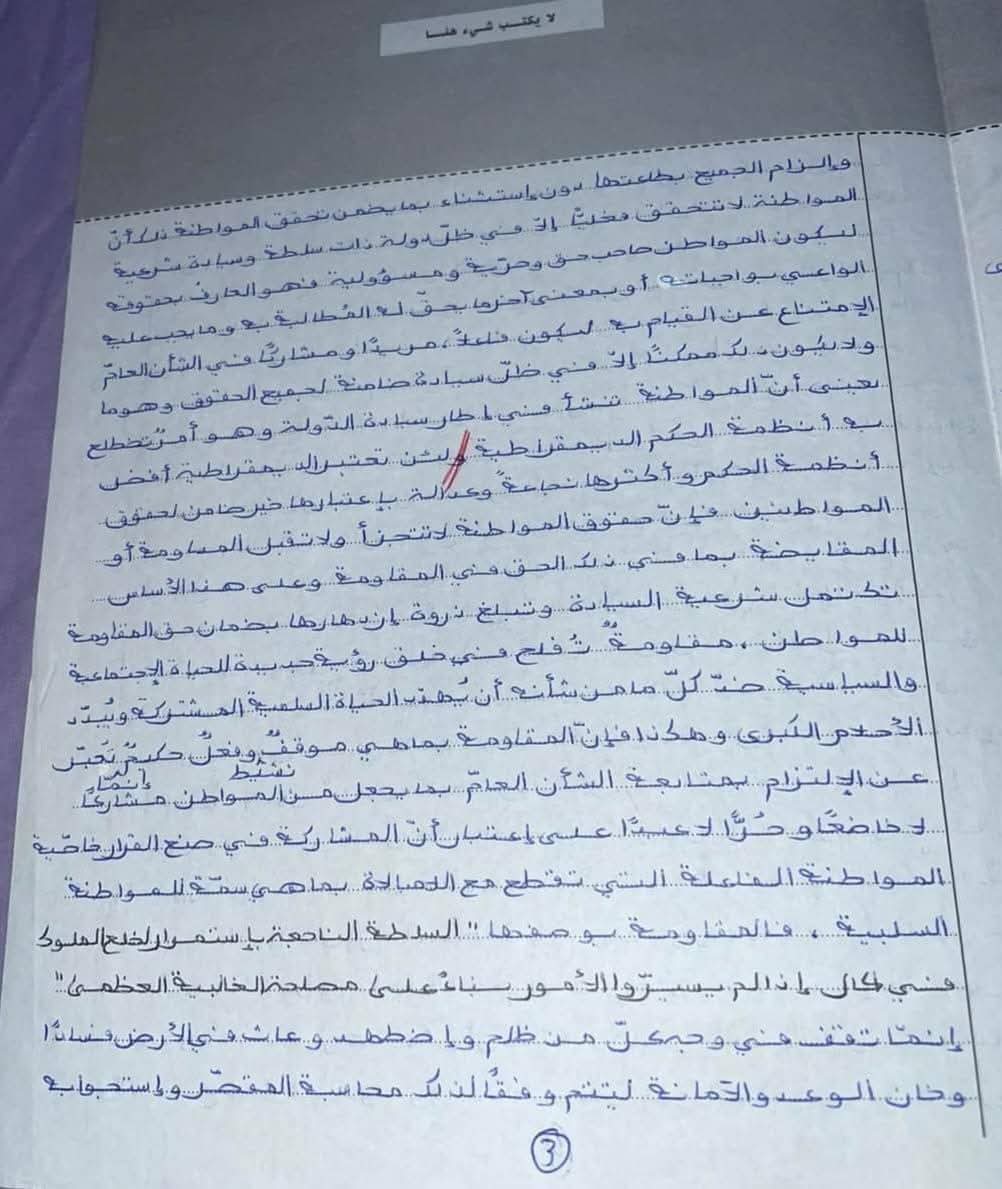 لا يكتب شيء هنا
وإلزام الجميع بطاعتها دون إستثناء بما يضمن تحقق المواطنة ذلك أنّ
المواطنة لا تتحقق فعليًّا إلاّ في ظلّ دولة ذات سلطة وسيادة شرعية
ليكون المواطن صاحب حق وحرّية ومسؤولية فهو العارف بحقوقه
الواعي بواجباته أو بمعنى آخر ما يحقّ له المُطالبة به وما يجب عليه
الإمتناع عن القيام به ليكون فاعلاً، مريدًا ومشاركًا في الشأن العامّ
ولا يكون ذلك ممكنًا إلاّ في ظلّ سيادة ضامنة لجميع الحقوق وهو ما
يعني أنّ المواطنة تنشأ في إطار سيادة الدّولة وهو أمرٌ تضطلع
به أنظمة الحكم الديمقراطية ولئن تعتبر الديمقراطية أفضل
أنظمة الحكم وأكثرها نجاعةً وعدالة بإعتبارها خير ضامن لحقوق
المواطنين فإنّ حقوق المواطنة لا تتجزأ ولا تقبل المساومة أو
المقايضة بما في ذلك الحق في المقاومة وعلى هذا الأساس
تكتمل شرعية السيادة وتبلغ ذروة إزدهارها بضمان حق المقاومة
للمواطن، مقاومةٌ تُفلح في خلق رؤية جديدة للحياة الإجتماعية
والسياسية ضدّ كلّ ما من شأنه أن يُهدّد الحياة السلمية المشتركة ويُبدّد
الأحلام الكبرى وهكذا فإنّ المقاومة بما هي موقفٌ وفعلٌ حكيمٌ تُعَبّر
عن الإلتزام بمتابعة الشأن العامّ بما يجعل من المواطن مشاركًا
نشيط
لا خاضعًا وحُرًّا لا عبدًا على إعتبار أنّ المشاركة في صنع القرار خاصّية
المواطنة الفاعلة التي تقطع مع اللامبالاة بما هي سمّة للمواطنة
السلبية، فالمقاومة بوصفها "السلطة الناجعة بإستمرار لخلع الملوك
في حال إذا لم يسيّروا الأمور بناءً على مصلحة الغالبية العظمى"
إنمّا تقف في وجه كلّ من ظلم وإضطهد وعاث في الأرض فسادًا
وخان الوعد والأمانة ليتم وفقًا لذلك محاسبة المقصّر وإستجوابه
3